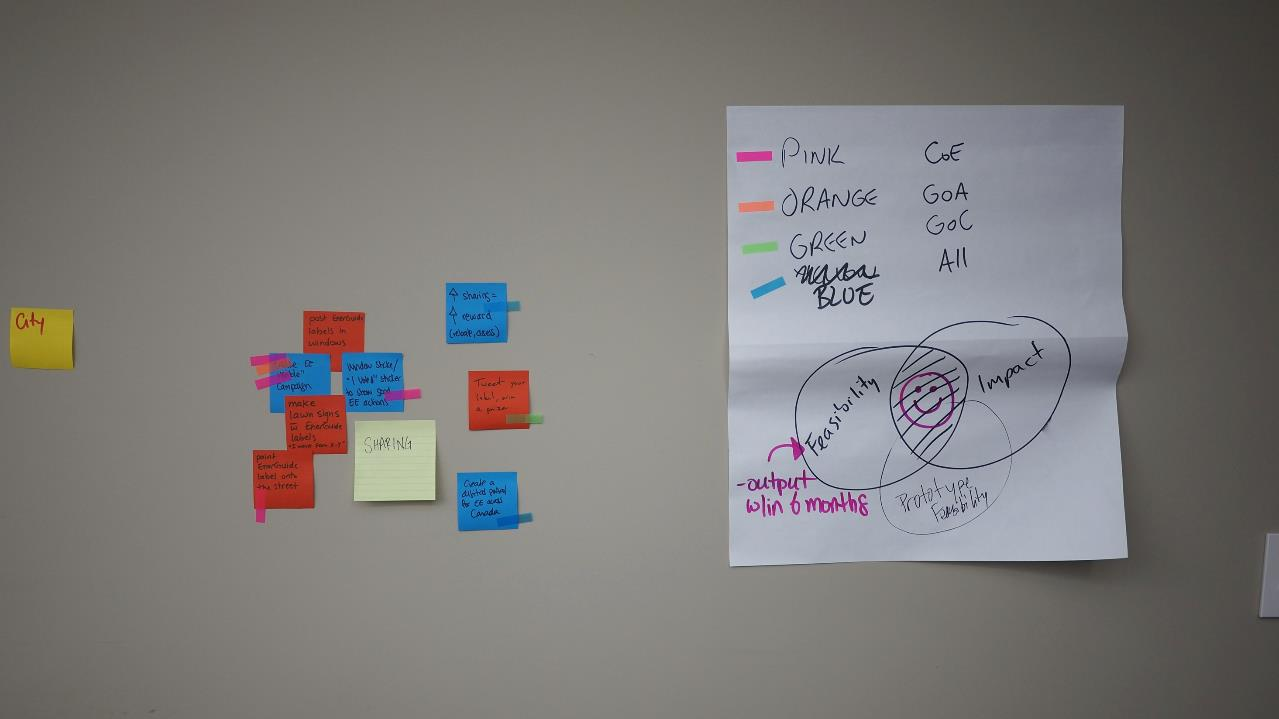 City
post EnerGuide
labels in
windows
EE
Campaign
Window Sticker/
"I Voted" sticker
to show good
EE actions
make
lawn signs
w EnerGuide
labels
paint
EnerGuide
label onto
the street
SHARING
↑ sharing =
↑
reward
Tweet your
label, win
a prize
Create a
digital portal
for EE across
Canada
PINK CoE
ORANGE GoA
GREEN GoC
BLUE All
Feasibility
Impact
Prototype
Feasibility
- output
w/in 6 months